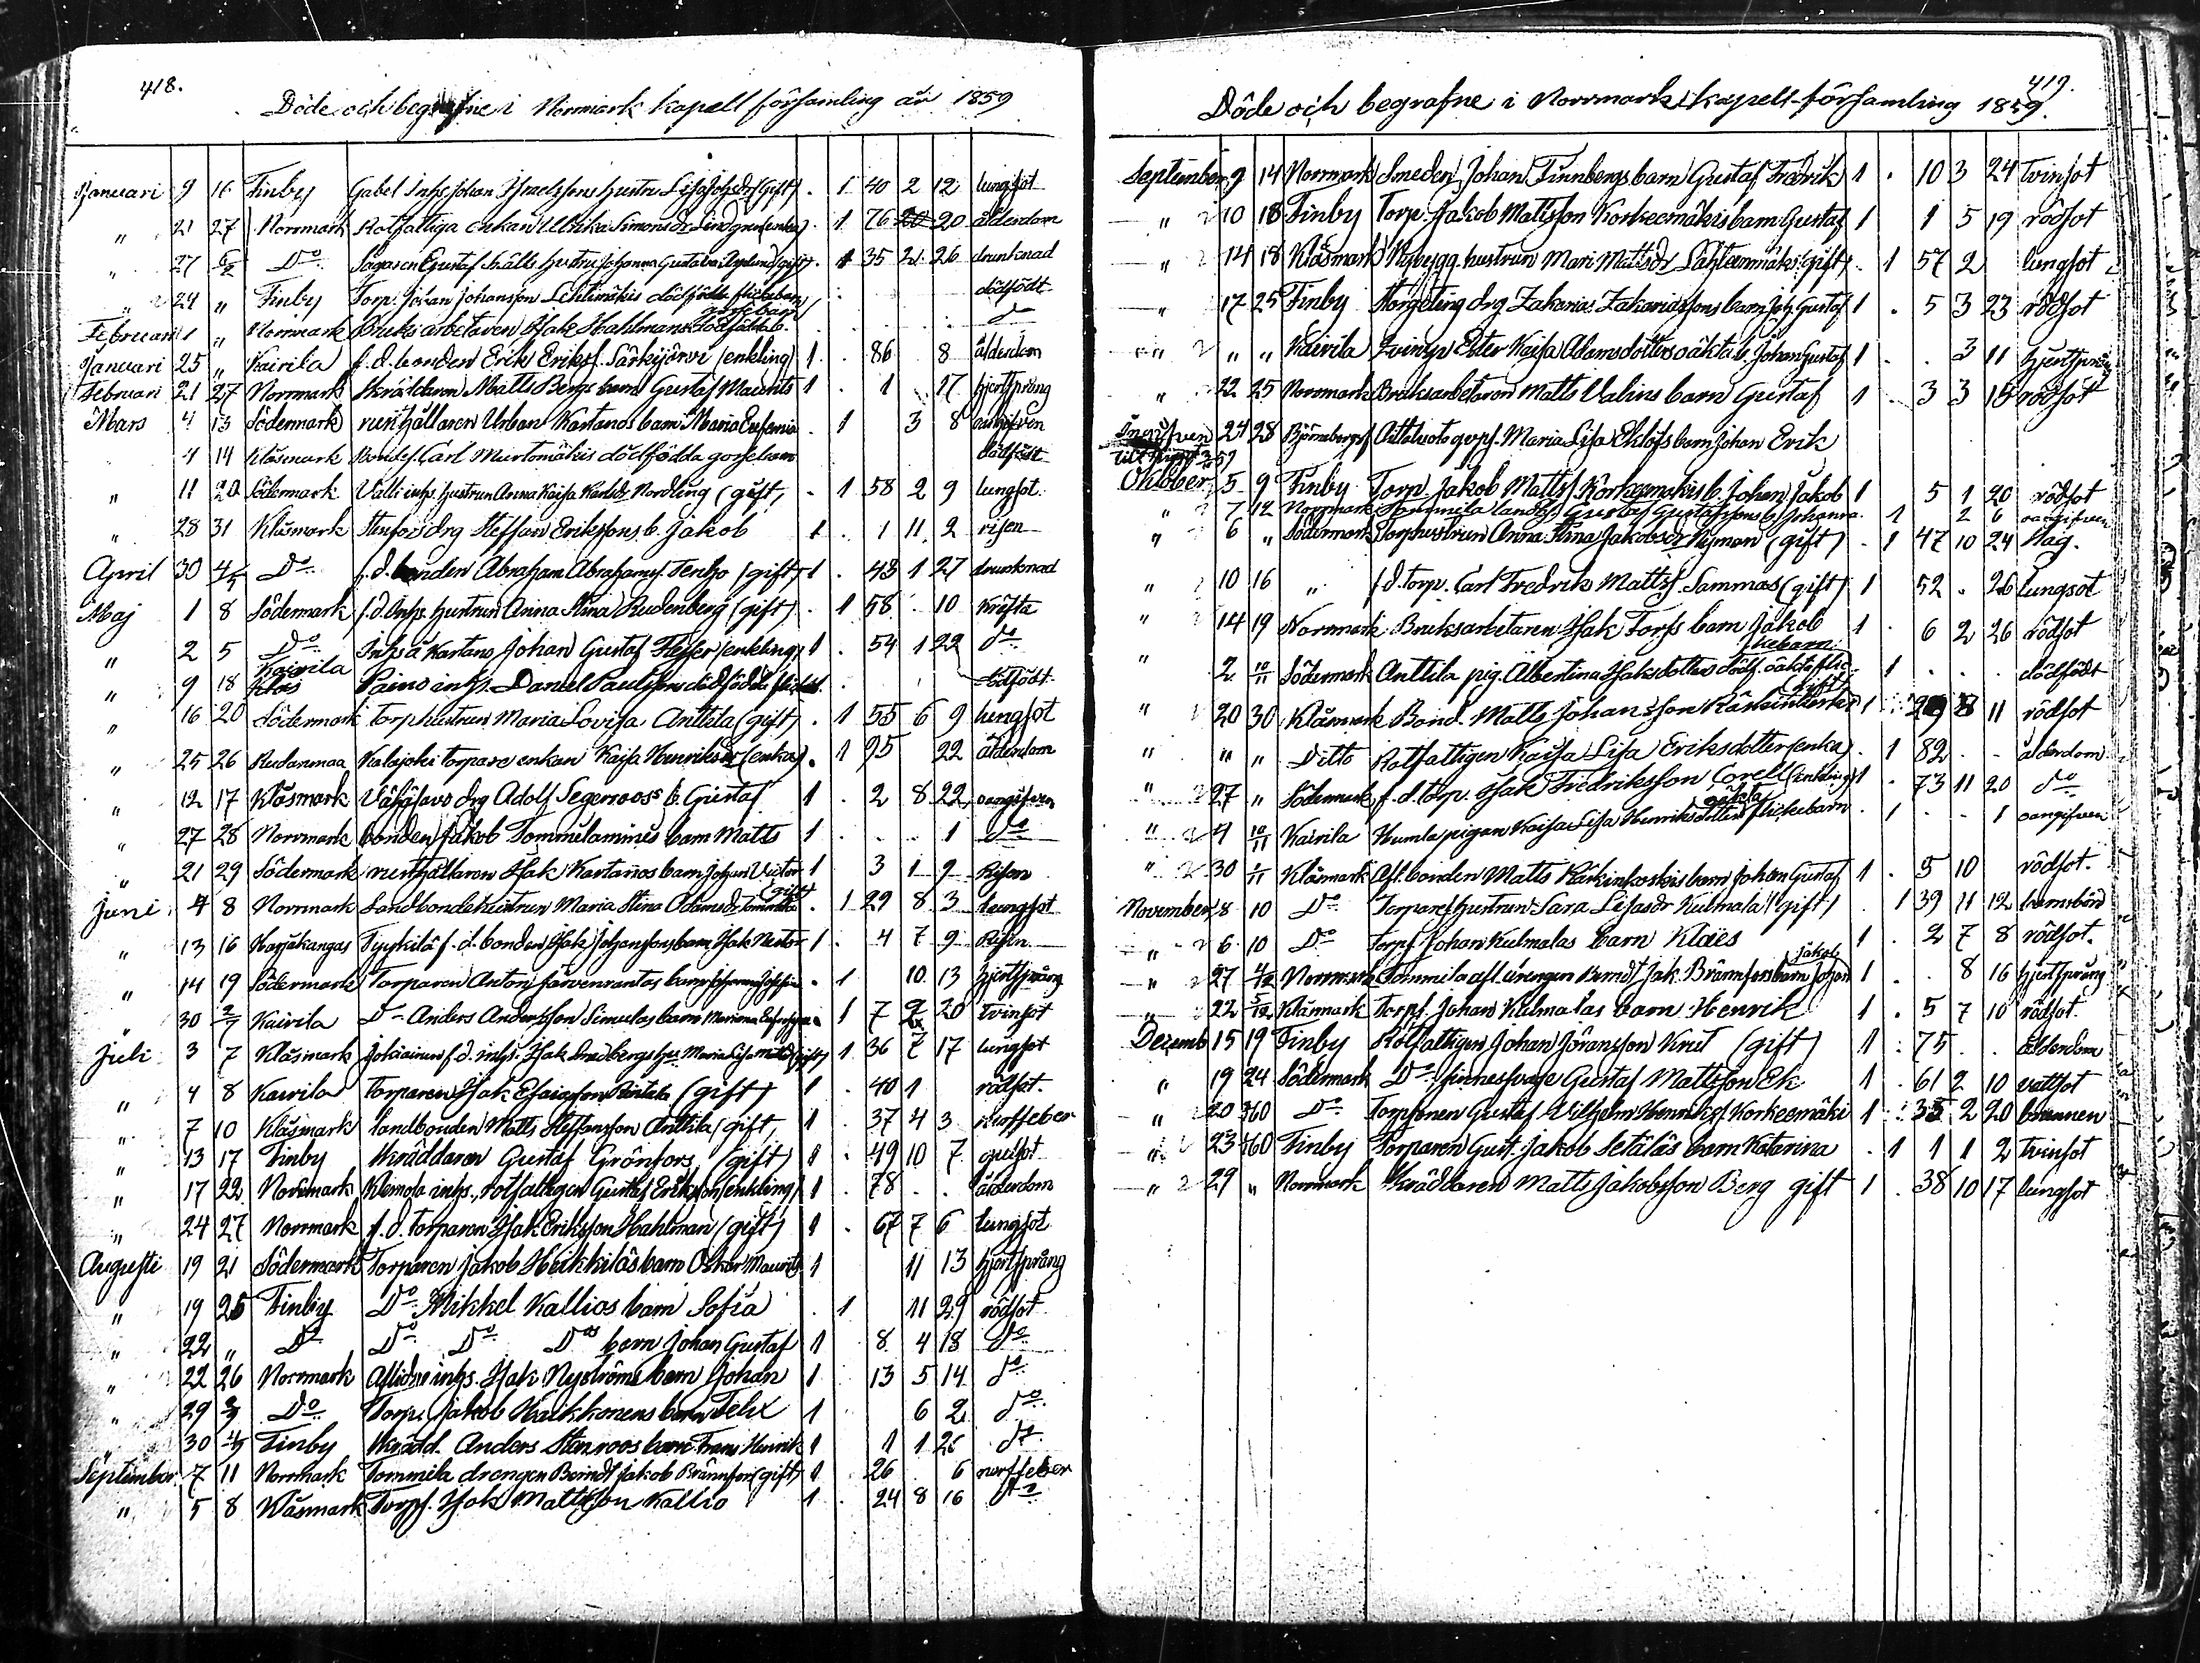 418.
Döde och begrafne i Norrmark kapell församling år 1859
Januari 9 16 Finby Gabel Inhs Johan Israelssons hustru Lisa Johsdr (gift) . 1 40 2 12 lungsot
" 21 27 Norrmark Rotfattiga enkan Ulrika Simonsdr Lindgren (enka) . 1 76 20 ålderdom
" 27 6/2 Do Sågaren Gustaf hustru Johanna Gustava (gift) . 1 35 2 26 drunknad
" 29 " Finby Torp. Johan Johansson Lehtimäkis dödfödda flickebarn dödfödt
Februari 1 " Norrmark Bruksarbetaren Isak Hahlmans dödfödda gossebarn
Januari 25 " Kairila f.d. bonden Erik Eriksf. Särkijärvi (enkling) 1 . 86 8 ålderdom
Februari 21 27 Norrmark Skräddaren Matts Bergs barn Gustaf Maurits 1 1 . 27 hjertsprång
Mars 4 13 Södermark rusthållaren Urban Kartanos barn Maria Eufemia . 1 3 8 oangifven
4 14 Klåsmark Bondes. Carl Murtomäkis dödfödda gossebarn dödfödt
" 11 20 Södermark Valli inhs. hustrun Anna Kaisa Karlsdr Nordling (gift) . 1 58 2 9 lungsot.
" 28 31 Klåsmark Stenfors drg Steffan Erikssons b. Jakob 1 . 1 11 2 risen
April 30 4/5 Do f.d. bonden Abraham Abrahamsf Tenho (gift) 1 . 43 1 27 drunknad
Maj 1 8 Södermark f.d. Inhs. hustrun Anna Stina Rudenberg (gift) . 1 58 . 10 kräfta
" 2 5 Do Inhs å Kartano Johan Gustaf (enkling) 1 . 54 1 22 do
" 9 18 Kairila Paino inhs. Daniel Paulssons dödfödda dödfödt
" 16 20 Södermark Torphustrun Maria Lovisa Anttila (gift) . 1 55 6 9 lungsot
" 25 26 Rudanmaa Kalajoki torpare enkan Kaisa Henriksdr (enka) . 1 95 22 ålderdom
" 12 17 Klåsmark drg Adolf Segerroos's b. Gustaf 1 . 2 8 22 oangifven
" 27 28 Norrmark bonden Jakob Tommilamines barn Matts 1 . . . 1 Do
" 21 29 Södermark rusthållaren Isak Kartanos barn Johan Victor 1 3 1 9 Risen
Juni 4 8 Norrmark Landbondehustrun Maria Stina Adamsdr (gift) . 1 29 8 3 lungsot
" 13 16 Harjakangas Tyykilä f.d. bonden Isak Johanssons barn Isak Nestor 1 . 4 7 9 Risen
" 14 19 Södermark Torparen Anton Järvenrantas barn . 1 10 13 hjertsprång
" 30 3/7 Kairila Do Anders Andersson Simulas barn 1 7 20 tvinsot
Juli 3 7 Klåsmark f.d. inhs. Isak hu Maria Lisa (gift) 1 36 7 17 lungsot
" 4 8 Kairila Torparen Isak Esaiasson (gift) 1 . 40 1 rödsot.
" 7 10 Klåsmark landbonden Matts Steffansson Anttila (gift) 1 . 37 4 3 nerffeber
" 13 17 Finby Skräddaren Gustaf Grönfors (gift) 1 . 49 10 7 gulsot
" 17 22 Norrmark Klemola inhs., rotfattigen Gustaf Eriksson (enkling) 1 . 78 . . ålderdom
" 24 27 Norrmark f.d. torparen Isak Eriksson Hahlman (gift) 1 . 67 7 6 lungsot
Augusti 19 21 Södermark Torparen Jakob Heikkiläs barn Oskar Maurits 1 11 13 hjertsprång
" 19 25 Finby Do Mikkel Kallios barn Sofia . 1 11 29 rödsot
" 22 " Do Do Do Dos barn Johan Gustaf 1 8 4 18 Do
" 22 26 Norrmark Aflidne inhs. Isak Nyströms barn Johan 1 13 5 14 do
" 29 3/9 Do Torp. Jakob Kaikkonens barn Felix 1 6 2 do
" 30 4/9 Finby Skrädd. Anders Stenroos barn Frans Henrik 1 1 1 26 do
September 7 11 Norrmark Tommila drengen Berndt Jakob Brännfors (gift) 1 26 6 nerffeber
" 5 8 Klåsmark Torps. Isak Mattsson Kallio 1 . 24 8 16 do
419.
Döde och begrafne i Norrmarks kapell-församling 1859.
September 9 14 Norrmark Smeden Johan Finnbergs barn Gustaf Fredrik 1 . 10 3 24 Tvinsot
" 10 18 Finby Torp. Jakob Mattsson Korkeemäkis barn Gustaf 1 1 5 19 rödsot
" 14 18 Klåsmark Nybygg. hustrun Mari Mattsdr Lähteenmäki (gift) . 1 57 2 lungsot
" 17 25 Finby Storgeting drg Zakarias Zakariassons barn Joh Gustaf 1 . 5 3 23 rödsot
" " " Kairila Ester Kaisa Adamsdotters oäkta b. Johan Gustaf 1 . . 3 11 hjertsprång
" 22 25 Norrmark Bruksarbetaren Matts Valins barn Gustaf 1 . 3 3 15 rödsot
24 28 Björneborgs Maria Lisa Eklöfs barn Johan Erik
Oktober 5 9 Finby Torp. Jakob Mattsf Korkeemäkis b. Johan Jakob 1 5 1 20 rödsot
" 7 12 Norrmark Tommila landb. Gustaf Gustafssons b. Johanna . 1 2 6 oangifven
" 6 " Södermark Torphustrun Anna Stina Jakobsdr Nyman (gift) . 1 47 10 24 slag.
" 10 16 " f.d. torp. Carl Fredrik Mattsf. Sammas (gift) 1 52 . 26 lungsot
" 14 19 Norrmark Bruksarbetaren Isak Torfs barn Jakob 1 . 6 2 26 rödsot
" 2 10/11 Södermark Anttila pig. Albertina Isaksdotters dödf. oäkta flickebarn 1 . . . dödfödt
" 20 30 Klåsmark Bond. Matts Johansson (gift) 1 8 11 rödsot
" " " Ditto Rotfattigen Kaisa Lisa Eriksdotter (enka) . 1 82 . - ålderdom
" 27 " Södermark f.d. torp. Isak Fredriksson Corell (enkling) 1 . 73 11 20 do
" 4 10/11 Kairila Humla pigan Kaisa Lisa Henriksdotters oäkta flickebarn . 1 . . 1 oangifven
" 30 1/11 Klåsmark Afl. bonden Matts Kärkinkoskis barn Johan Gustaf 1 . 5 10 rödsot.
November 8 10 Do Torpare hustrun Sara Lisasdr Kulmala (gift) . 1 39 11 12 barnsbörd
" 6 10 Do Torps Johan Kulmalas barn Klaës 1 . 2 7 8 rödsot.
" 27 4/12 Norrmark Tommila afl drengen Berndt Jak. Brännfors barn Johan Jakob 1 . . 8 16 hjertsprång
" 22 5/12 Klåsmark Torps. Johan Kulmalas barn Henrik 1 . 5 7 10 rödsot.
Decemb 15 19 Finby Rotfattigen Johan Göransson Knut (gift) 1 . 75 . . ålderdom
" 19 24 Södermark Do Gustaf Mattsson Ek 1 . 61 2 10 vattsot
" 20 Do Torpsonen Gustaf Vilhelm Henriksf Korkeemäki 1 . 35 2 20
" 23 Finby Torparen Gust. Jakob Setäläs barn Katarina . 1 1 1 2 tvinsot
" 29 " Norrmark Skräddaren Matts Jakobsson Berg gift 1 . 38 10 17 lungsot